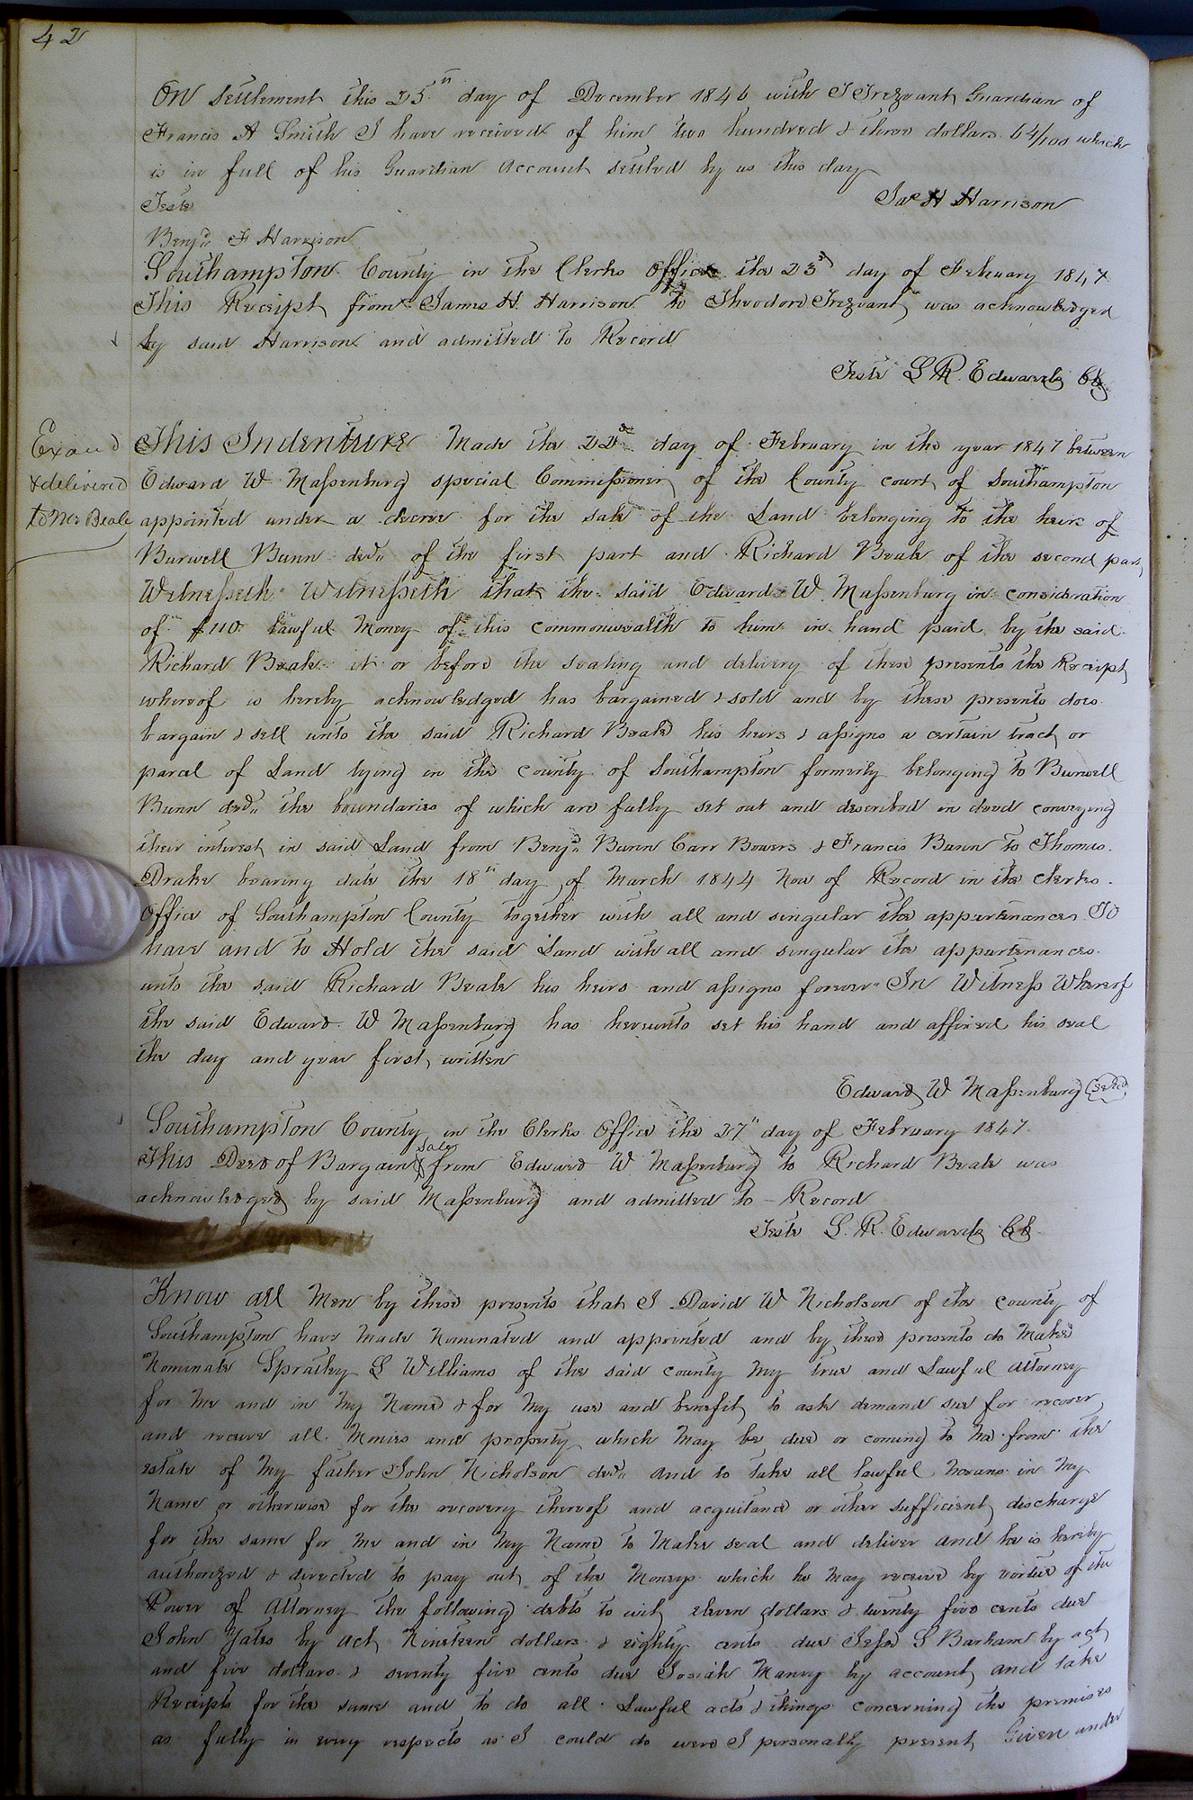 42
On Settlement this 25th day of December 1846 with T Trezvant Guardian of
Francis A Smith I have received of him two hundred & three dollars 64/100 which
is in full of his Guardian Account settled by us this day
Teste
Jas H Harrison
Benjn F Harrison
Southampton County in the Clerks Office the 23d day of February 1847
This Receipt from James H. Harrison to Theodore Trezvant was acknowledged
by said Harrison and admitted to Record
Teste L R. Edwards Clk
Examd
& delivered
to Mr Beale
This Indenture Made the 22d day of February in the year 1847 between
Edward W Massenburg special Commissioner of the County court of Southampton
appointed under a decree for the sale of the Land belonging to the heirs of
Burwell Bunn decd of the first part and Richard Beale of the second part
Witnesseth Witnesseth that the said Edward W Massenburg in consideration
of $110 lawful Money of this commonwealth to him in hand paid by the said
Richard Beale at or before the sealing and delivery of these presents the Receipt
whereof is hereby acknowledged has bargained & sold and by these presents does
bargain & sell unto the said Richard Beale his heirs & assigns a certain tract or
parcel of Land lying in the county of Southampton formerly belonging to Burwell
Bunn decd the boundaries of which are fully set out and described in deed conveying
their interest in said Land from Benjn Bunn Carr Bowers & Francis Bunn to Thomas
Drake bearing date the 18th day of March 1844 Now of Record in the Clerks
Office of Southampton County together with all and singular the appurtenances To
have and to Hold the said Land with all and singular the appurtenances
unto the said Richard Beale his heirs and assigns forever In Witness Whereof
the said Edward W Massenburg has hereunto set his hand and affixed his seal
the day and year first written
Edward W Massenburg (Seal)
Southampton County in the Clerks Office the 27th day of February 1847
This Deed of Bargain & sale from Edward W Massenburg to Richard Beale was
acknowledged by said Massenburg and admitted to Record
Teste L. R. Edwards Clk
Know all Men by these presents that I David W Nicholson of the county of
Southampton have Made Nominated and appointed and by these presents do Make
Nominate Spratley L Williams of the said county My true and Lawful Attorney
for Me and in My Name & for My use and benefit to ask demand sue for recover
and receive all Monies and property which May be due or coming to Me from the
estate of My father John Nicholson decd and to take all lawful Means in My
Name or otherwise for the recovery thereof and acquitance or other sufficient discharge
for the same for Me and in My Name to Make seal and deliver and he is hereby
authorized & directed to pay out of the Moneys which he May receive by virtue of the
Power of Attorney the following debts to wit eleven dollars & twenty five cents due
John Yates by act Nineteen dollars & eighty cents due Jesse S Barham by act
and five dollars & seventy five cents due Josiah Maney by account and take
Receipts for the same and to do all Lawful acts & things concerning the premises
as fully in every respects as I could do were I personally present Given under